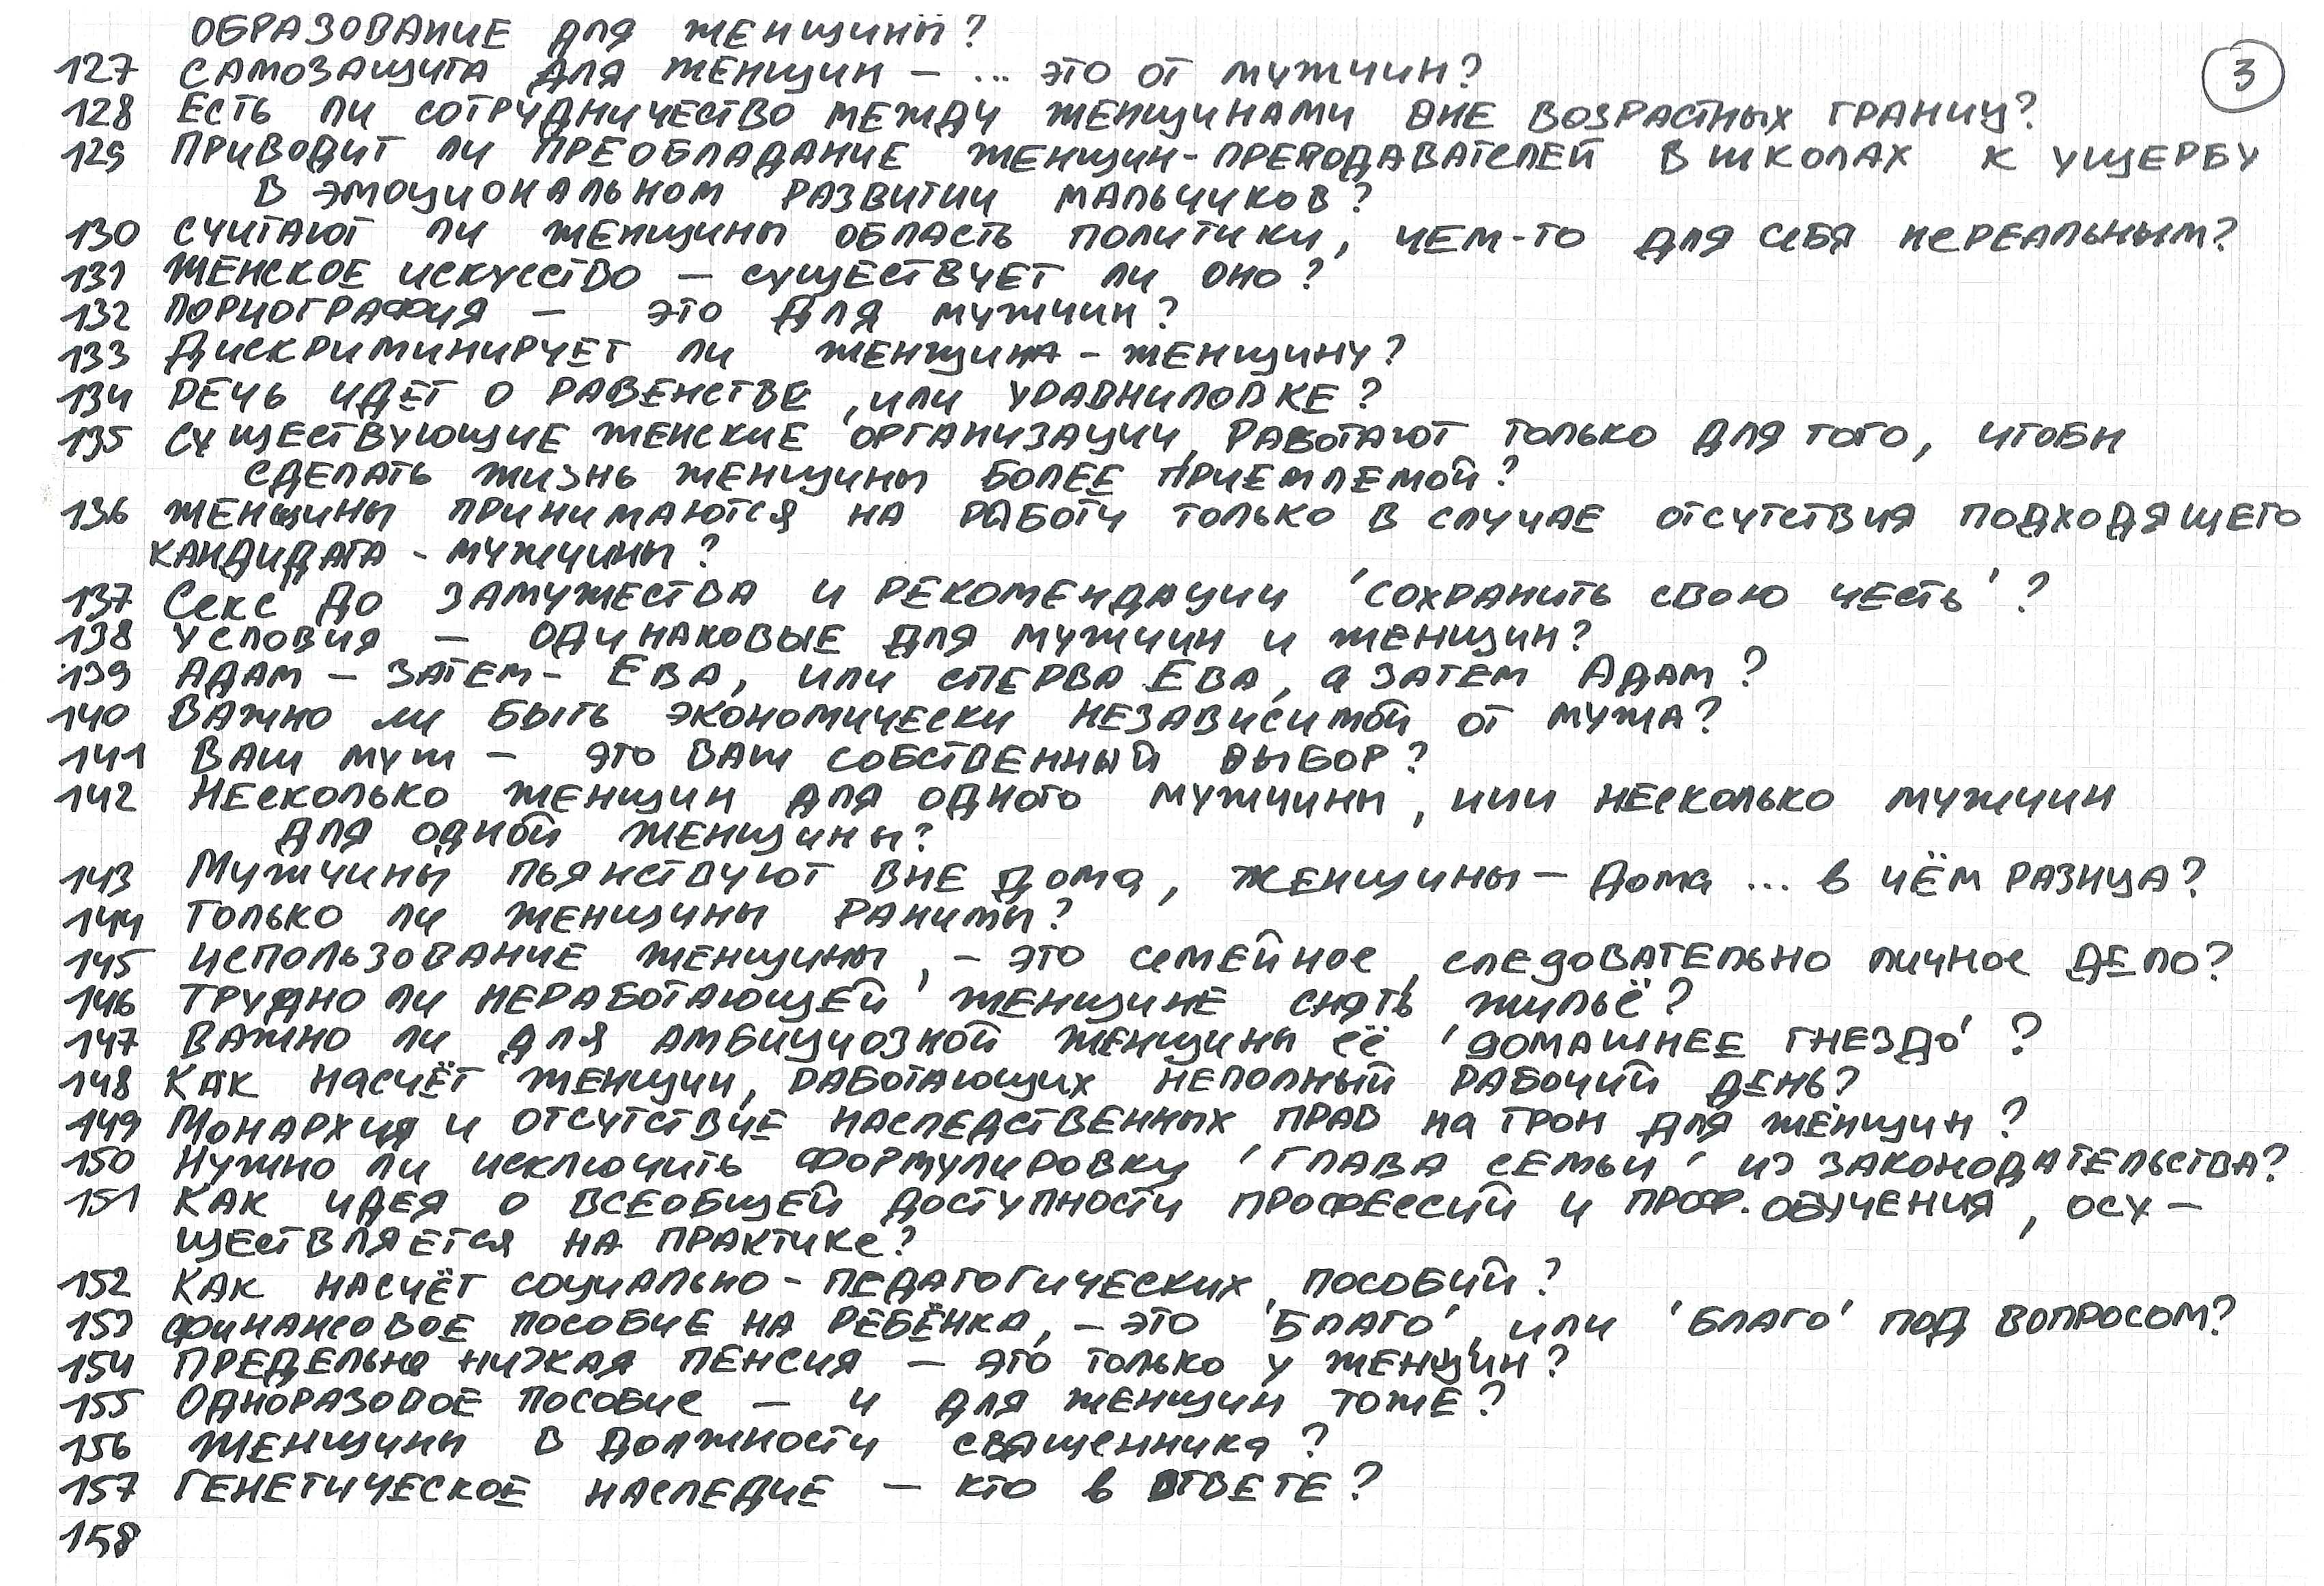 ОБРАЗОВАНИЕ ДЛЯ ЖЕНЩИНЫ?
3
127 САМОЗАЩИТА ДЛЯ ЖЕНЩИН – ... ЭТО ОТ МУЖЧИН?
128 ЕСТЬ ЛИ СОТРУДНИЧЕСТВО МЕЖДУ ЖЕНЩИНАМИ ВНЕ ВОЗРАСТНЫХ ГРАНИЦ?
129 ПРИВОДИТ ЛИ ПРЕОБЛАДАНИЕ ЖЕНЩИН-ПРЕПОДАВАТЕЛЕЙ В ШКОЛАХ К УЩЕРБУ
В ЭМОЦИОНАЛЬНОМ РАЗВИТИИ МАЛЬЧИКОВ?
130 СЧИТАЮТ ЛИ ЖЕНЩИНЫ ОБЛАСТЬ ПОЛИТИКИ, ЧЕМ-ТО ДЛЯ СЕБЯ НЕРЕАЛЬНЫМ?
131 ЖЕНСКОЕ ИСКУССТВО – СУЩЕСТВУЕТ ЛИ ОНО?
132 ПОРНОГРАФИЯ – ЭТО ДЛЯ МУЖЧИН?
133 ДИСКРИМИНИРУЕТ ЛИ ЖЕНЩИНА – ЖЕНЩИНУ?
134 РЕЧЬ ИДЕТ О РАВЕНСТВЕ, ИЛИ УРАВНИЛОВКЕ?
135 СУЩЕСТВУЮЩИЕ ЖЕНСКИЕ ОРГАНИЗАЦИИ, РАБОТАЮТ ТОЛЬКО ДЛЯ ТОГО, ЧТОБЫ
СДЕЛАТЬ ЖИЗНЬ ЖЕНЩИНЫ БОЛЕЕ ПРИЕМЛЕМОЙ?
136 ЖЕНЩИНЫ ПРИНИМАЮТСЯ НА РАБОТУ ТОЛЬКО В СЛУЧАЕ ОТСУТСТВИЯ ПОДХОДЯЩЕГО
КАНДИДАТА - МУЖЧИНЫ?
137 СЕКС ДО ЗАМУЖЕСТВА И РЕКОМЕНДАЦИИ 'СОХРАНИТЬ СВОЮ ЧЕСТЬ'?
138 УСЛОВИЯ – ОДИНАКОВЫЕ ДЛЯ МУЖЧИН И ЖЕНЩИН?
139 АДАМ – ЗАТЕМ - ЕВА, ИЛИ СПЕРВА ЕВА, а ЗАТЕМ АДАМ?
140 ВАЖНО ЛИ БЫТЬ ЭКОНОМИЧЕСКИ НЕЗАВИСИМОЙ ОТ МУЖА?
141 ВАШ МУЖ – ЭТО ВАШ СОБСТВЕННЫЙ ВЫБОР?
142 НЕСКОЛЬКО ЖЕНЩИН ДЛЯ ОДНОГО МУЖЧИНЫ, ИЛИ НЕСКОЛЬКО МУЖЧИН
ДЛЯ ОДНОЙ ЖЕНЩИНЫ?
143 МУЖЧИНЫ ПЬЯНСТВУЮТ ВНЕ ДОМа, ЖЕНЩИНЫ – ДОМа ... в ЧЁМ РАЗНИЦА?
144 ТОЛЬКО ЛИ ЖЕНЩИНЫ РАНИМЫ?
145 ИСПОЛЬЗОВАНИЕ ЖЕНЩИНЫ, – ЭТО СЕМЕЙНОЕ, СЛЕДОВАТЕЛЬНО ЛИЧНОЕ ДЕЛО?
146 ТРУДНО ЛИ НЕРАБОТАЮЩЕЙ ЖЕНЩИНЕ СНЯТЬ ЖИЛЬЁ?
147 ВАЖНО ЛИ ДЛЯ АМБИЦИОЗНОЙ ЖЕНЩИНЫ ЕЁ 'ДОМАШНЕЕ ГНЕЗДО'?
148 КАК НАСЧЁТ ЖЕНЩИН, РАБОТАЮЩИХ НЕПОЛНЫЙ РАБОЧИЙ ДЕНЬ?
149 МОНАРХИЯ И ОТСУТСТВИЕ НАСЛЕДСТВЕННЫХ ПРАВ На ТРОН ДЛЯ ЖЕНЩИН?
150 НУЖНО ЛИ ИСКЛЮЧИТЬ ФОРМУЛИРОВКУ 'ГЛАВА СЕМЬИ' ИЗ ЗАКОНОДАТЕЛЬСТВА?
151 КАК ИДЕЯ О ВСЕОБЩЕЙ ДОСТУПНОСТИ ПРОФЕССИЙ И ПРОФ. ОБУЧЕНИЯ, ОСУ-
ЩЕСТВЛЯЕТСЯ НА ПРАКТИКЕ?
152 КАК НАСЧЁТ СОЦИАЛЬНО - ПЕДАГОГИЧЕСКИХ ПОСОБИЙ?
153 ФИНАНСОВОЕ ПОСОБИЕ НА РЕБЁНКА, – ЭТО 'БЛАГО', ИЛИ 'БЛАГО' ПОД ВОПРОСОМ?
154 ПРЕДЕЛЬНО НИЗКАЯ ПЕНСИЯ – ЭТО ТОЛЬКО У ЖЕНЩИН?
155 ОДНОРАЗОВОЕ ПОСОБИЕ – И ДЛЯ ЖЕНЩИН ТОЖЕ?
156 ЖЕНЩИНЫ В ДОЛЖНОСТИ СВЯЩЕННИКа?
157 ГЕНЕТИЧЕСКОЕ НАСЛЕДИЕ – КТО в ОТВЕТЕ?
158